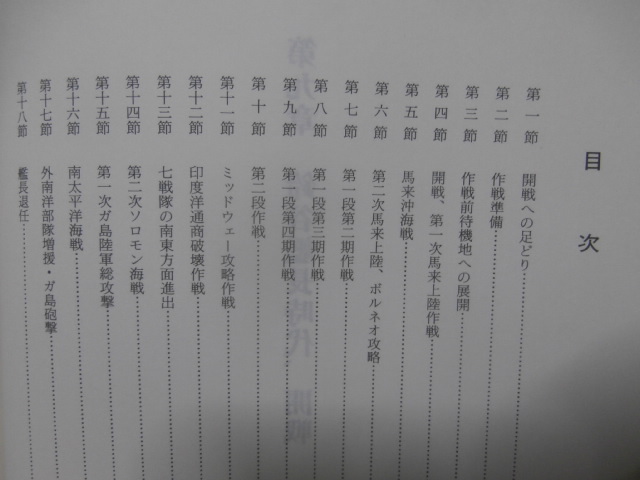 目次
第一節 開戦への足どり
第二節 作戦準備
第三節 作戦前待機地への展開
第四節 開戦、第一次馬来上陸作戦
第五節 馬来沖海戦
第六節 第二次馬来上陸、ボルネオ攻略
第七節 第一段第二期作戦
第八節 第一段第三期作戦
第九節 第一段第四期作戦
第十節 第二段作戦
第十一節 ミッドウェー攻略作戦
第十二節 印度洋通商破壊作戦
第十三節 七戦隊の南東方面進出
第十四節 第二次ソロモン海戦
第十五節 第一次ガ島陸軍総攻撃
第十六節 南太平洋海戦
第十七節 外南洋部隊増援・ガ島砲撃
第十八節 艦長退任